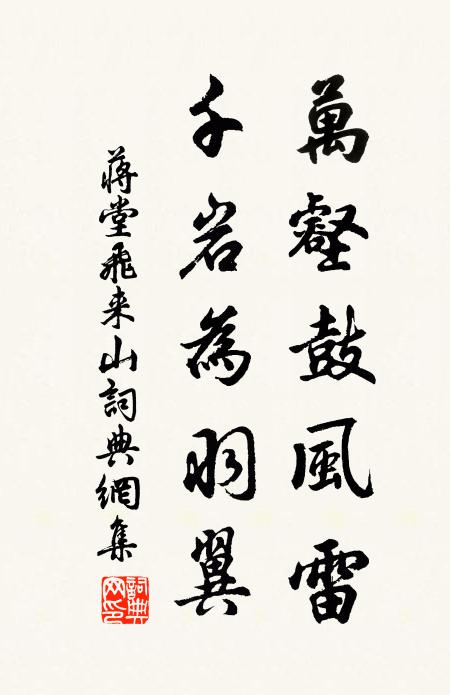 萬壑鼓風雷
千岩為羽翼
蔣堂飛来山詞典網集
詞典网印